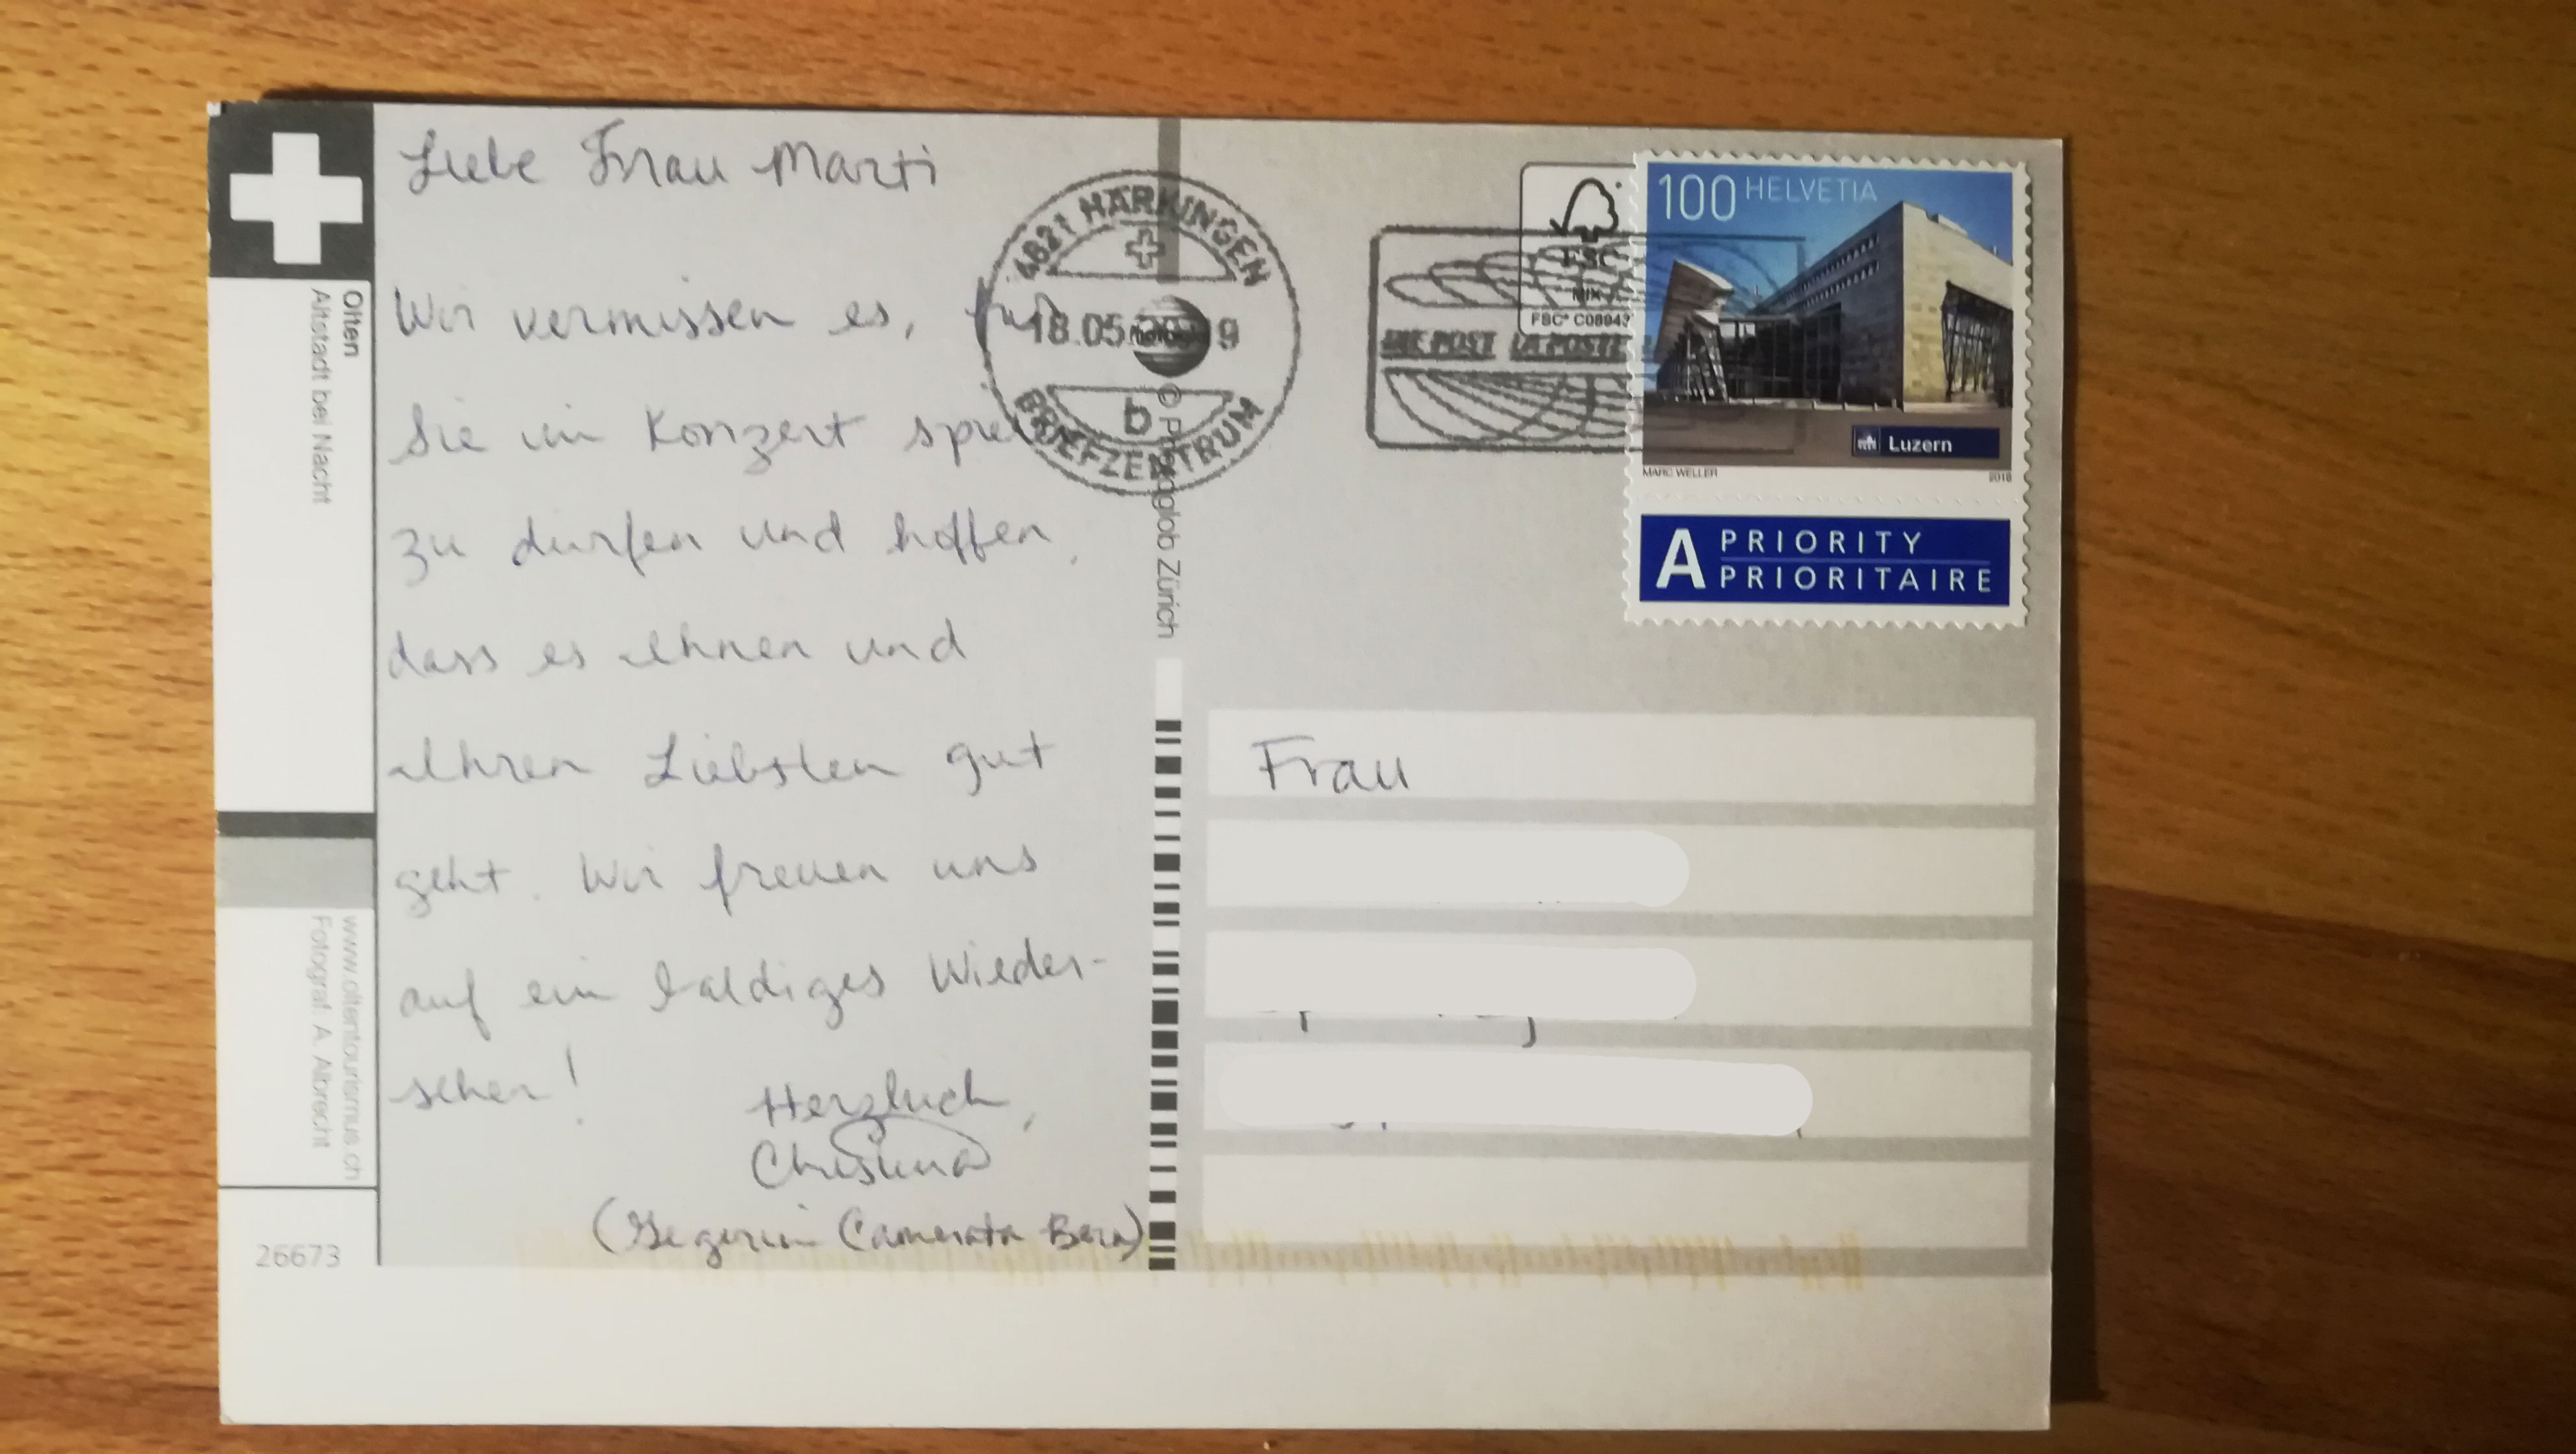 Olten
Altstadt bei Nacht
www.oltentourismus.ch
Fotograf: A. Albrecht
26673
Liebe Frau Marti
Wir vermissen es, für
Sie im Konzert
zu dürfen und hoffen,
dass es Ihnen und
Ihren Liebsten gut
geht. Wir freuen uns
auf ein baldiges Wieder-
sehen!
Herzlich,
Christina
(Geigerin Camerata Bern)
4621 HÄRKINGEN
18.05.
b
BRIEFZENTRUM
Photoglob Zürich
FSC
MIX
DIE POST LA POSTE
100 HELVETIA
Luzern
MARC WELLER 2016
A PRIORITY
PRIORITAIRE
Frau